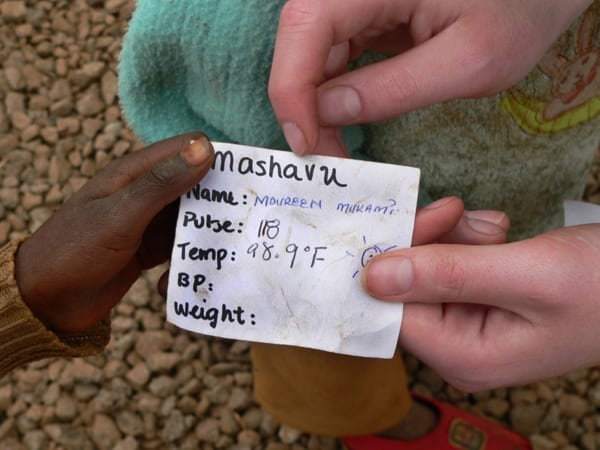 Mashavu
Name: MOUREEN MUKAMI
Pulse: 118
Temp: 98.9°F
BP:
Weight: